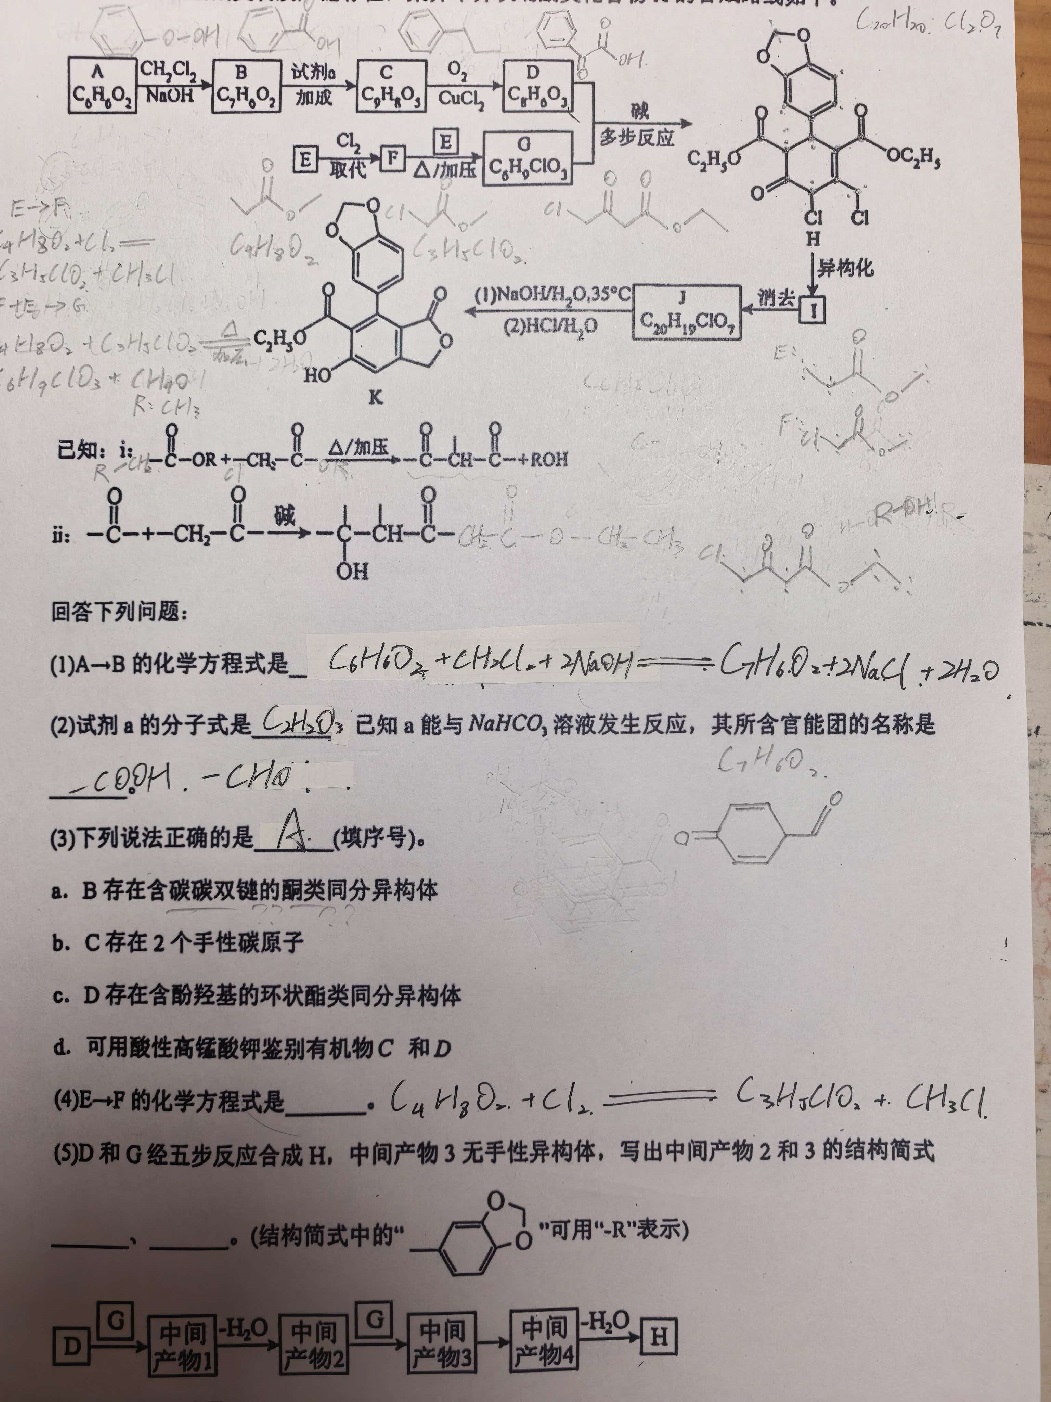 C20H20Cl2O7
A
C6H6O2
CH2Cl2
NaOH
B
C7H6O2
试剂a
加成
C
C9H8O5
O2
CuCl2
D
C8H6O3
碱
多步反应
E
Cl2
取代
F
E
△/加压
G
C6H9ClO3
C2H5O
OC2H5
O
O
O
O
O
Cl
Cl
H
异构化
I
消去
J
C20H19ClO7
(1)NaOH/H2O,35°C
(2)HCl/H2O
C2H5O
O
O
O
O
O
HO
K
E→F
C4H8O2+Cl2=
C3H5ClO2+CH3Cl
C4H8O2
C3H5ClO2
R:CH3
E:
F:
已知：i：-C-OR+-CH2-C- △/加压 -C-CH-C-+ROH
ii：-C-+-CH2-C- 碱 -C-CH-C-
OH
R-OH
回答下列问题：
(1)A→B 的化学方程式是 C6H6O2+CH2Cl2+2NaOH══C7H6O2+2NaCl+2H2O
(2)试剂 a 的分子式是 C2H2O3 已知 a 能与 NaHCO3 溶液发生反应，其所含官能团的名称是
C7H6O2
-COOH. -CHO
(3)下列说法正确的是 A (填序号)。
a．B 存在含碳碳双键的酮类同分异构体
b．C 存在 2 个手性碳原子
c．D 存在含酚羟基的环状酯类同分异构体
d．可用酸性高锰酸钾鉴别有机物 C 和 D
(4)E→F 的化学方程式是______。C4H8O2+Cl2══C3H5ClO2+CH3Cl
(5)D 和 G 经五步反应合成 H，中间产物 3 无手性异构体，写出中间产物 2 和 3 的结构简式
______、______。(结构简式中的“ O O ”可用“-R”表示)
D G 中间产物1 -H2O 中间产物2 G 中间产物3 中间产物4 -H2O H